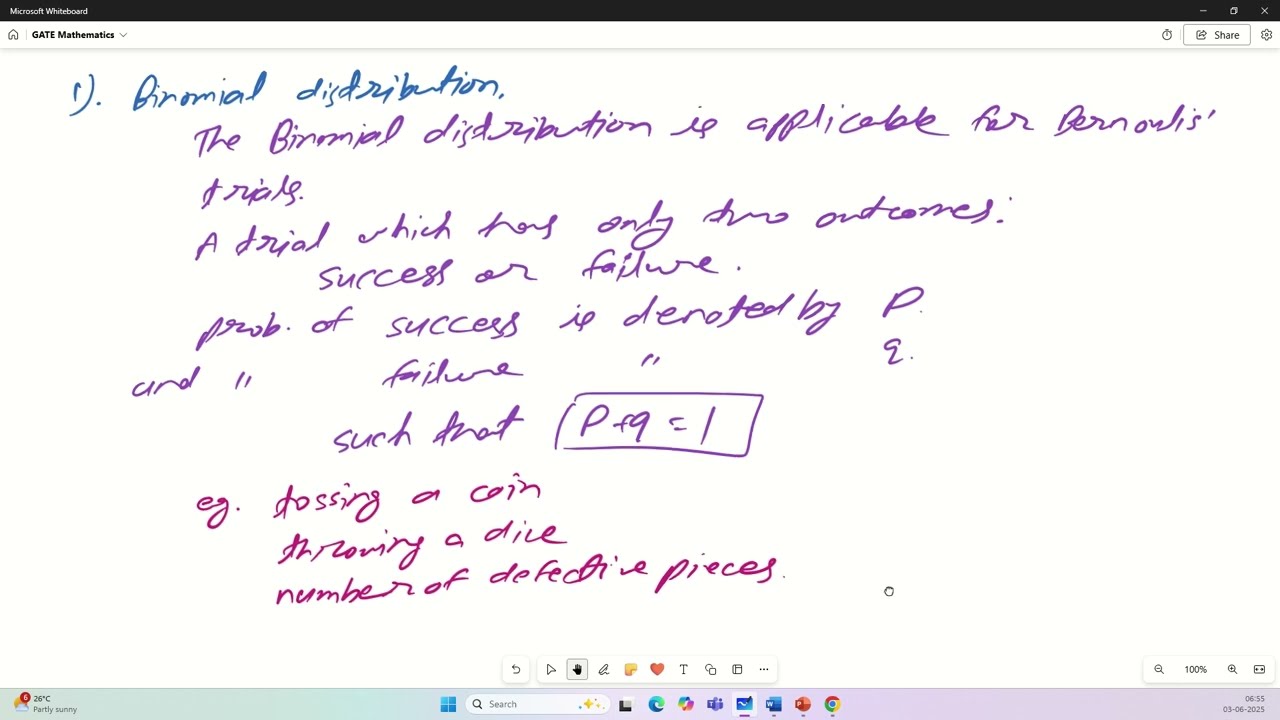 Microsoft Whiteboard
GATE Mathematics
Share
1). Binomial distribution.
The Binomial distribution is applicable for Bernoulis'
trials.
A trial which has only two outcomes:
success or failure.
prob. of success is denoted by P.
and " failure " q.
such that P+q = 1
eg. tossing a coin
throwing a dice
number of defective pieces.
100%
6
26°C
Partly sunny
Search
06:55
03-06-2025